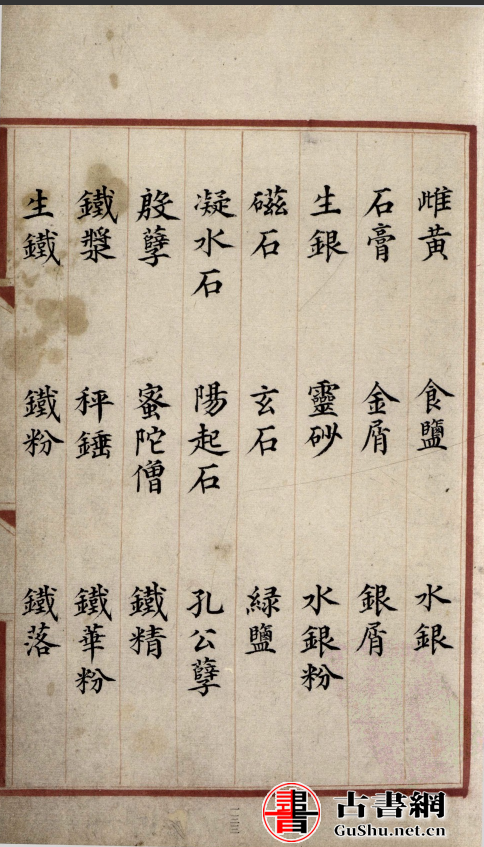 雌黃 食鹽 水銀
石膏 金屑 銀屑
生銀 靈砂 水銀粉
磁石 玄石 綠鹽
凝水石 陽起石 孔公孽
殷孽 蜜陀僧 鐵精
鐵漿 秤錘 鐵華粉
生鐵 鐵粉 鐵落
書 古書網
GuShu.net.cn